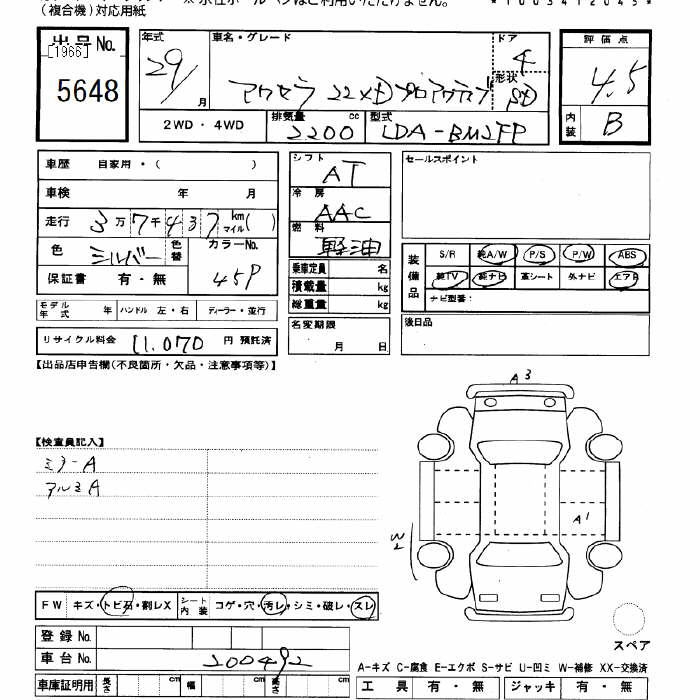 (複合機)対応用紙
出品No. 年式 車名・グレード ドア 評価点
[1966] 5648
29/月 アクセラ 22XD プロアクティブ 4 形状 SD 4.5
2WD・4WD 排気量 cc 2200 型式 LDA-BM2FP 内装 B
車歴 自家用・( )
車検 年 月
走行 3万7千437 km マイル( )
色 シルバー 色替 カラーNo. 45P
保証書 有・無
モデル年式 年 ハンドル 左・右 ディーラー・並行
リサイクル料金 11,070 円 預託済
シフト AT
冷房 AAC
燃料 軽油
乗車定員 名
積載量 kg
総重量 kg
名変期限 月 日
セールスポイント
装備品 S/R 純A/W P/S P/W ABS
純TV 純ナビ 革シート 外ナビ エアB
ナビ型番:
後日品
【出品店申告欄(不良箇所・欠品・注意事項等)】
【検査員記入】
ミラーA
アルミA
A3
A1
W2
FW キズ・トビ石・割レX シート内装 コゲ・穴・汚レ・シミ・破レ・スレ
登録No.
車台No. 200492
車庫証明用 長さ cm 幅 cm 高さ cm
スペア
A-キズ C-腐食 E-エクボ S-サビ U-凹ミ W-補修 XX-交換済
工具 有・無 ジャッキ 有・無